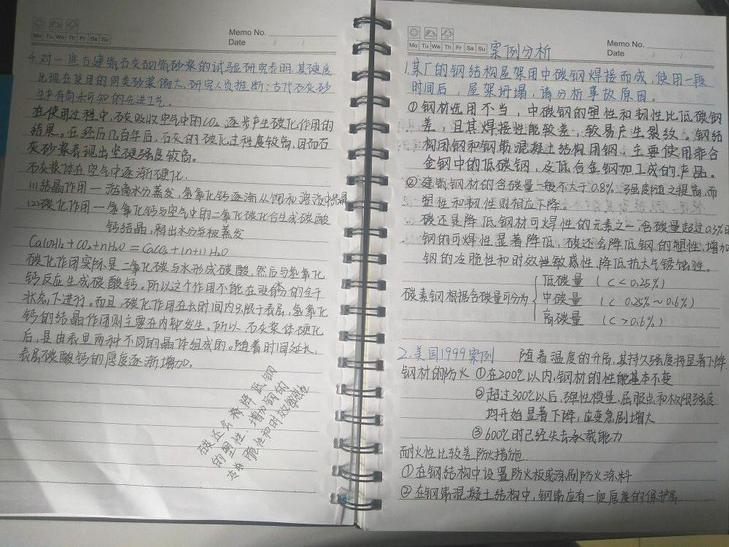 Memo No.
Mo Tu We Th Fr Sa Su
Date
4.对一些古建筑石灰砌筑砂浆的试验研究表明,其硬度
出现在某目的同类砂浆偏大,研究人员推断:古代石灰砂
浆中有尚未可知的先进工艺。
在使用过程中,硬吸收空气中的CO₂,逐步产生碳化作用的
结果。在经历几百年后,石灰的碳化过程度较高,因而石
灰砂浆表现出坚硬强度较高。
石灰浆体在空气中逐渐硬化
(1)结晶作用—游离水分蒸发,氢氧化钙逐渐从饱和溶液中结晶
(2)碳化作用—氢氧化钙与空气中的二氧化碳化合生成碳酸
钙结晶,释出水分并被蒸发
Ca(OH)₂+CO₂+nH₂O=CaCO₃+(n+1)H₂O
碳化作用实际是二氧化碳与水形成碳酸,然后与氢氧化
钙反应生成碳酸钙,所以这个作用不能在没水分的全干
状态下进行。而且,碳化作用在长时间内只限于表层,氢氧化
钙的结晶作用则主要在内部发生,所以,石灰浆体硬化
后,是由表里两种不同的晶体组成的。随着时间延长,
表层碳酸钙的厚度逐渐增加。
碳还会降低钢
的塑性,增加钢的
冷脆性和时效敏感性
Memo No.
Mo Tu We Th Fr Sa Su
Date
案例分析
1.某厂的钢结构屋架用中碳钢焊接而成,使用一段
时间后,屋架坍塌,请分析事故原因。
①钢材选用不当,中碳钢的塑性和韧性比低碳钢
差,且其焊接性能较差,较易产生裂纹。钢结
构用钢和钢筋混凝土结构用钢,主要使用非合
金钢中的低碳钢,及低合金钢加工成的产品。
②建筑钢材的含碳量一般不大于0.8%。强度随之提高,而
塑性和韧性则相应下降。
碳还是降低钢材可焊性的元素之一,含碳量超过0.3%时
钢的可焊性显著降低,碳还会降低钢的塑性,增加
钢的冷脆性和时效敏感性,降低抗大气锈蚀性。
低碳量 (C<0.25%)
碳素钢根据含碳量可分为 中碳量 (C 0.25%~0.6%)
高碳量 (C>0.6%)
2.美国1999案例 随着温度的升高,其持久强度将显著下降
钢材的防火 ①在200℃以内,钢材的性能基本不变
②超过300℃以后,弹性模量,屈服点和极限强度
均开始显著下降,应变急剧增大
③600℃时已经失去承载能力
耐火性比较差防火措施
①在钢结构中设置防火板或涂刷防火涂料
②在钢筋混凝土结构中,钢筋应有一定厚度的保护层